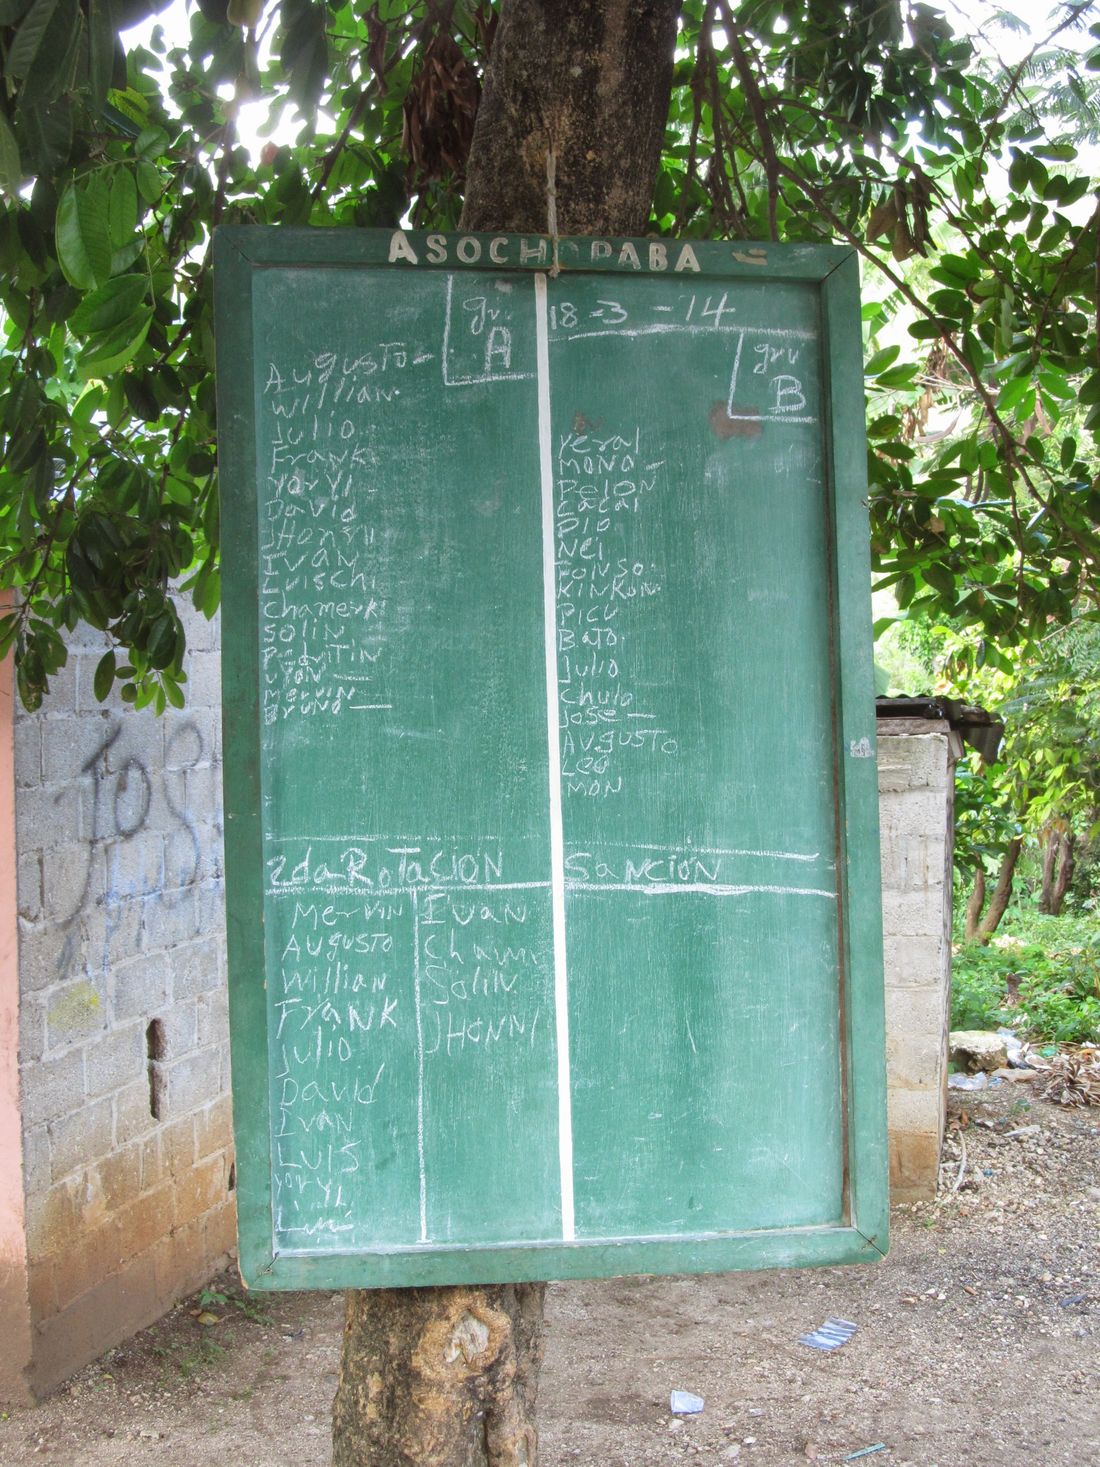 ASOCHOPABA
gru A
Augusto
Willian
Julio
Frank
Yoryi
David
JHonny
Ivan
Erischi
Chamerki
Solin
Mervin
Bruno
18-3-14
gru B
Yeral
Mono
Pelon
Cacai
Pio
Nei
Fonso
KinKon
Picu
Bato
Julio
Chulo
Jose
Augusto
Leo
Mon
2da RoTacion
Mervin
Augusto
Willian
FranK
Julio
David
Ivan
Luis
Yoryi
Ivan
Chami
Solin
JHonny
Sancion
Jos